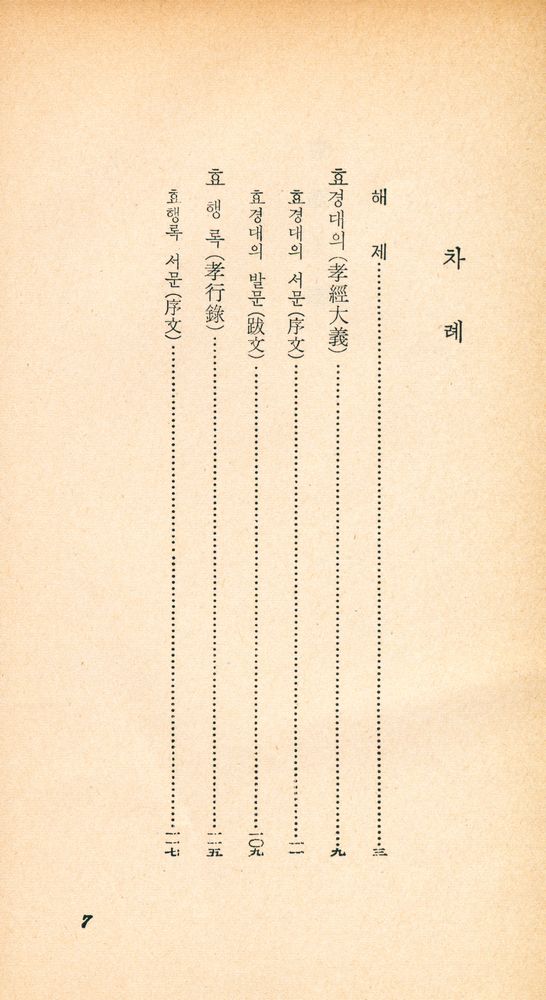 차례
해제……三
효경대의(孝經大義)……九
효경대의 서문(序文)……一一
효경대의 발문(跋文)……一〇九
효행록(孝行錄)……一一五
효행록 서문(序文)……一一七
7